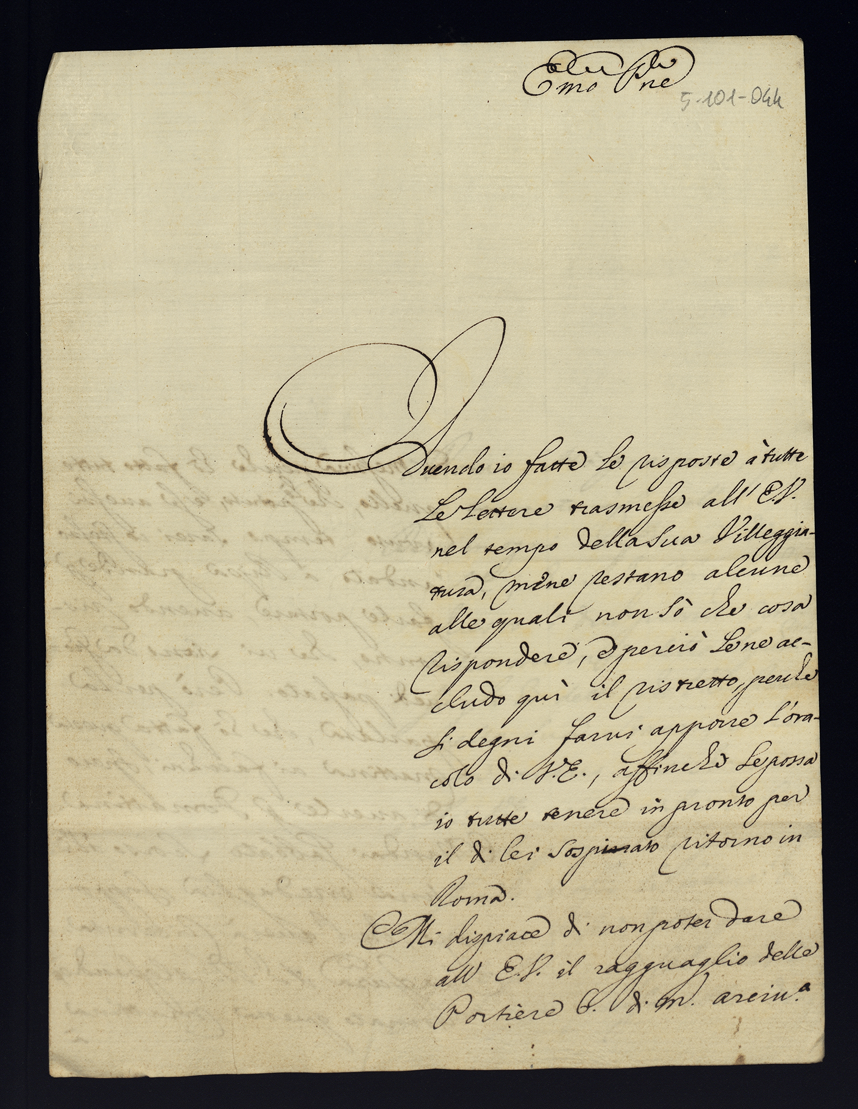 Emo Pne
5-101-044
Avendo io fatte le risposte à tutte
le lettere trasmesse all' E.V.
nel tempo della sua Villeggia-
tura, mene restano alcune
alle quali non sò che cosa
rispondere, e perciò lene ac-
cludo quì il ristretto, perche
si degni farvi apporre l'ora-
colo di V.E., affinche le possa
io tutte tenere in pronto per
il di lei sospirato ritorno in
Roma.
Mi dispiace di non poter dare
all' E.V. il ragguaglio delle
Portiere di m.